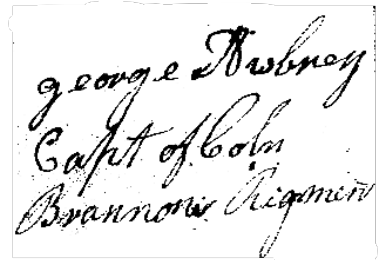 george Awbrey
Capt of Coln
Brannons Rigmen